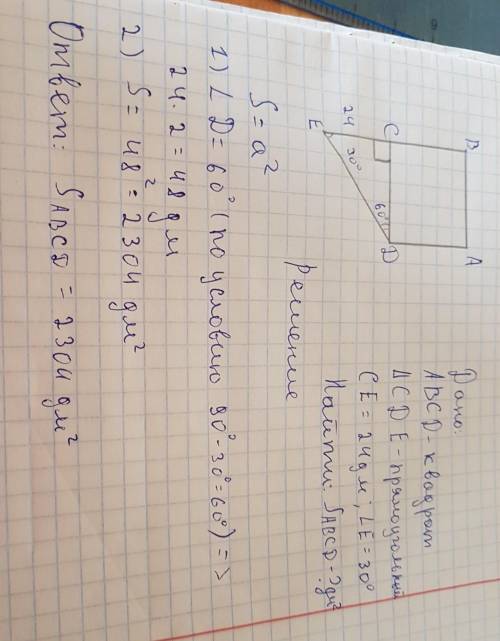 Дано:
ABCD - квадрат
ΔCDE - прямоугольный
CE = 24 дм; ∠E = 30°
Найти: S ABCD - ? дм²
B
A
C
D
24
30°
60°
E
Решение
S = a²
1) ∠D = 60° (по условию 90° - 30° = 60°) =>
24 · 2 = 48 дм
2) S = 48² = 2304 дм²
Ответ: S ABCD = 2304 дм²